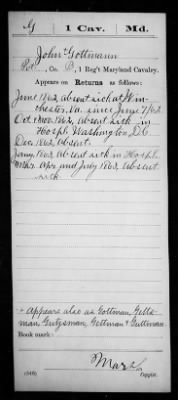 G | 1 Cav. | Md.
John Gottmann
Pvt., Co. B, 1 Reg't Maryland Cavalry.
Appears on Returns as follows:
June 1862, absent sick at Win-
chester, Va. since June 7/62
Oct. & Nov. 1862, Absent sick in
Hospl. Washington, D.C.
Dec. 1862, absent.
Jany. 1863 absent sick in Hospl.
Apr. and July 1863, absent
sick.
* Appears also as Gottman, Gells-
man, Gutzsman, Gettman & Guttman
Book mark:
(546)
Copyist.